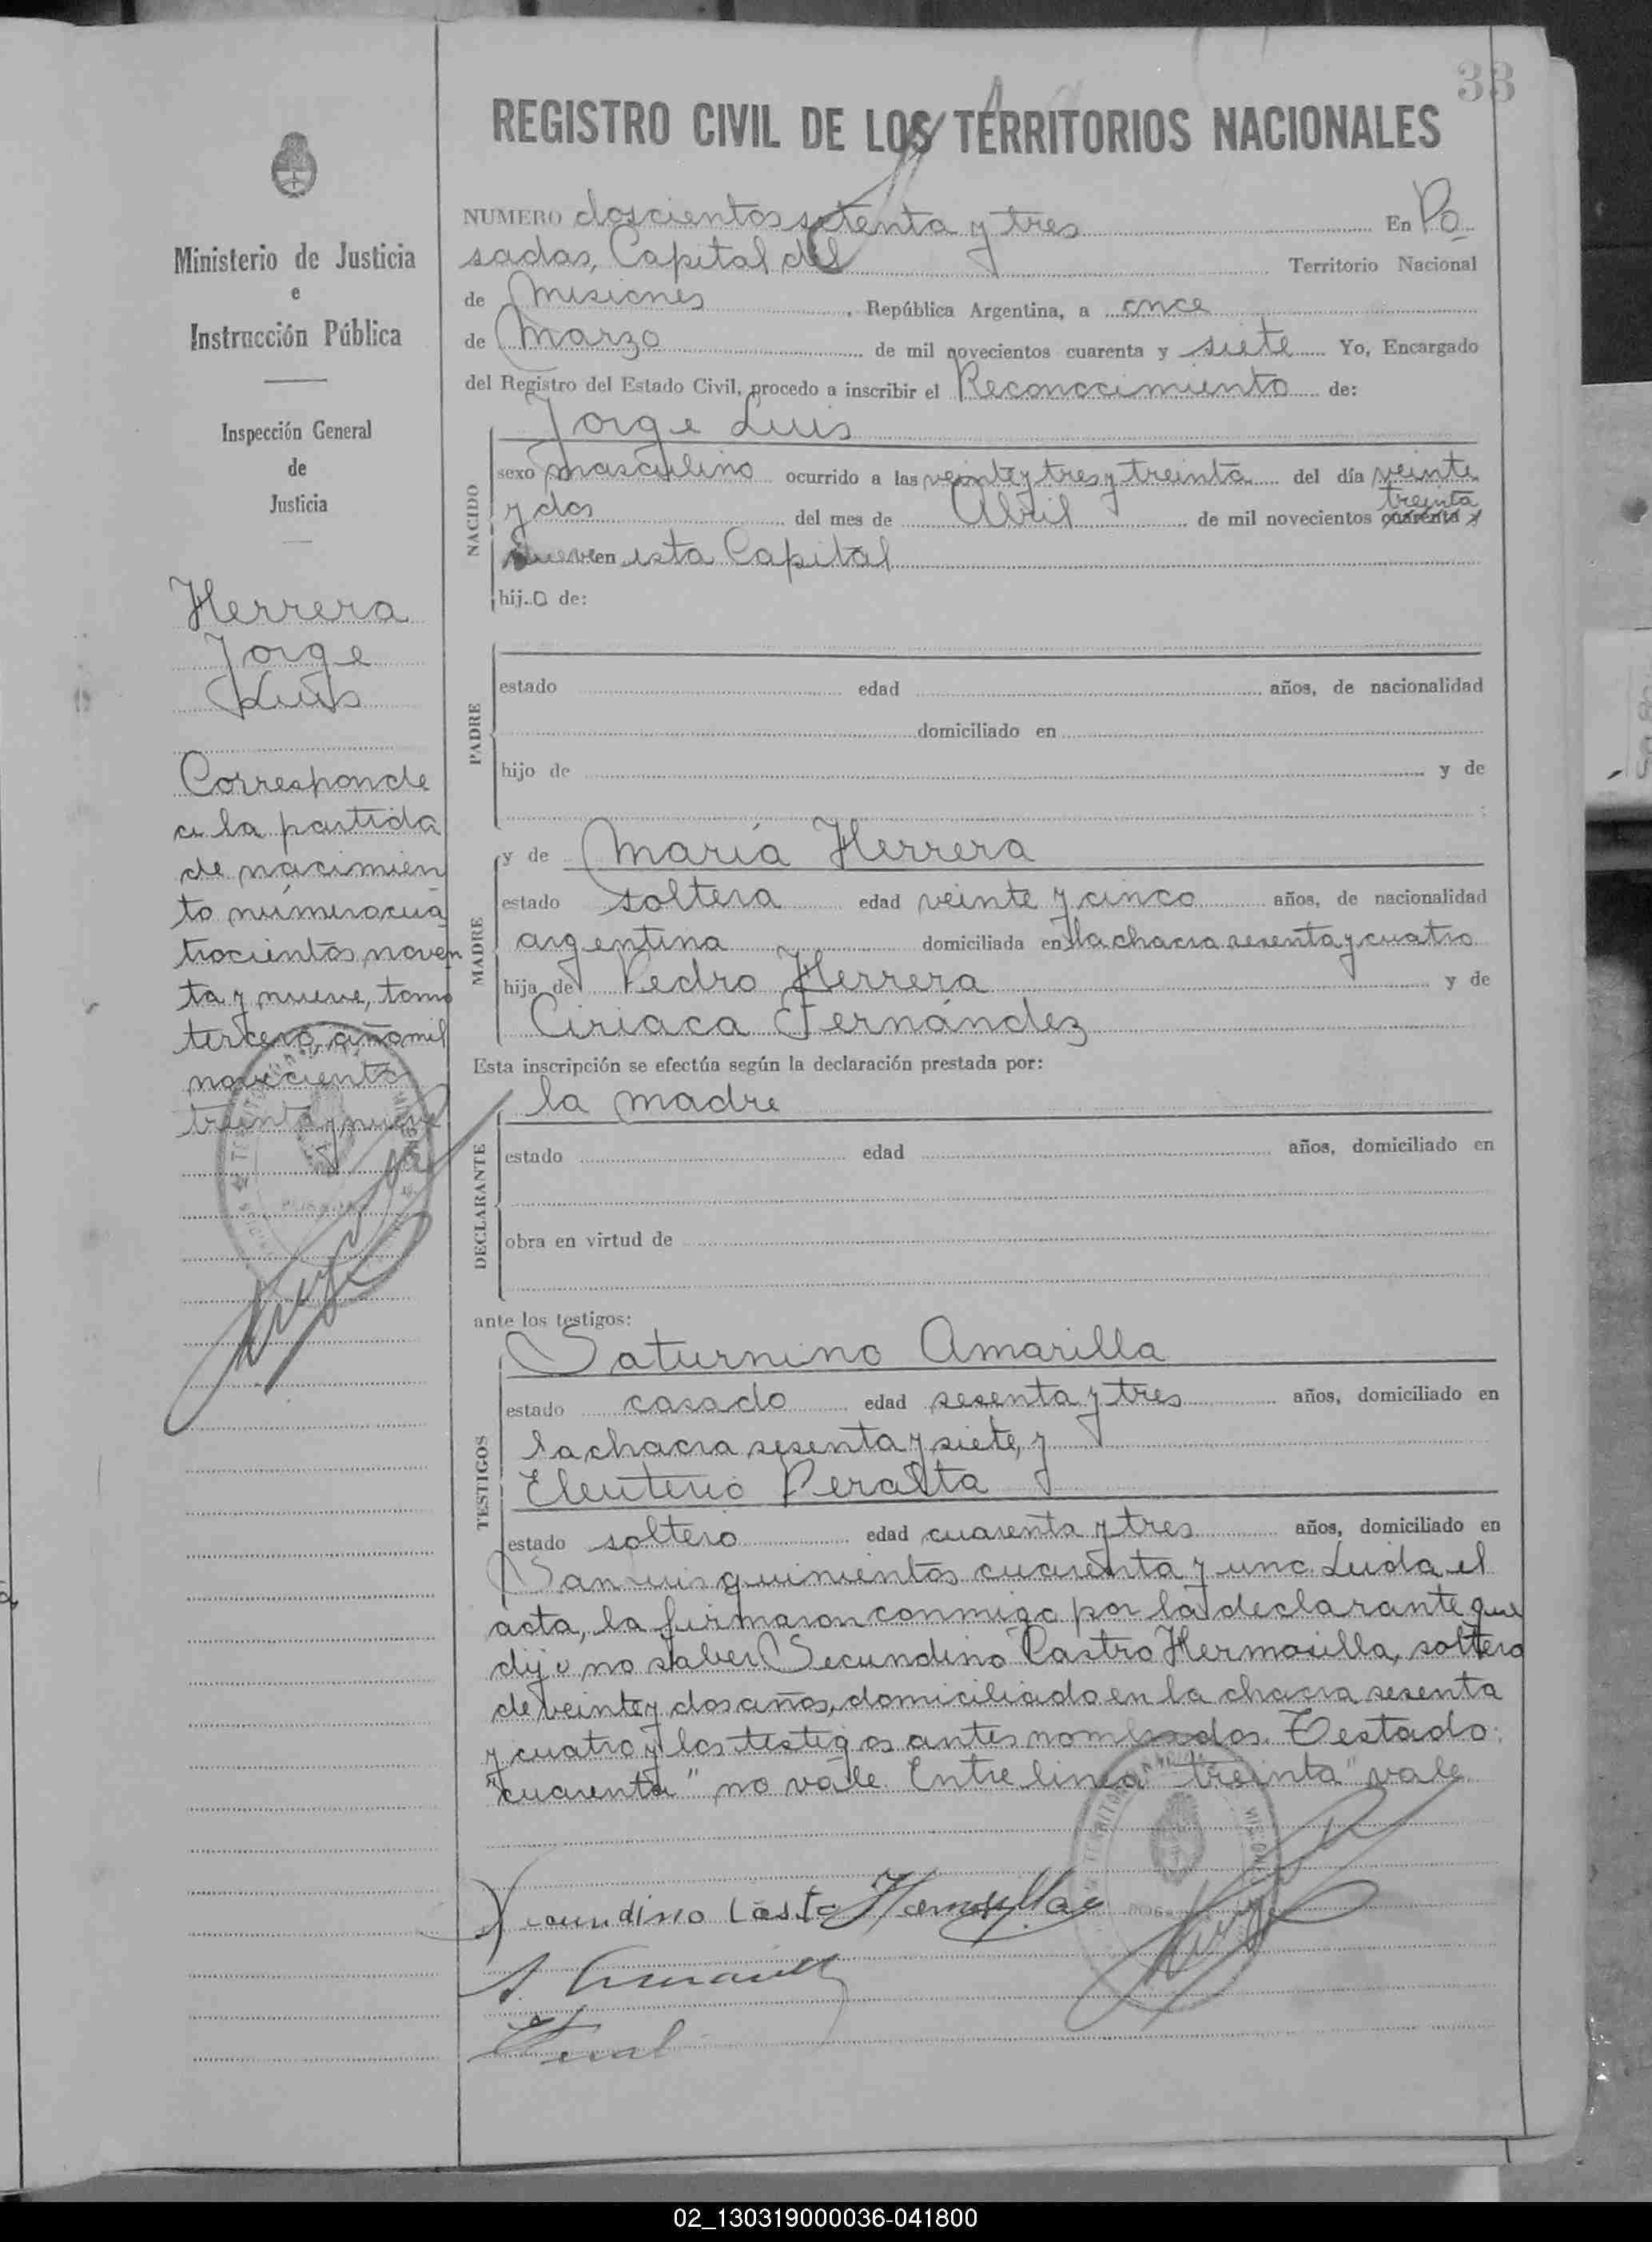 33
REGISTRO CIVIL DE LOS TERRITORIOS NACIONALES
NUMERO doscientos setenta y tres En Po
sadas, Capital del Territorio Nacional
de Misiones, República Argentina, a once
de Marzo de mil novecientos cuarenta y siete Yo, Encargado
del Registro del Estado Civil, procedo a inscribir el Reconocimiento de:
NACIDO
Jorge Luis
sexo masculino ocurrido a las veinte y tres y treinta del día veinte
treinta
y dos del mes de Abril de mil novecientos cuarenta y
nueve en esta Capital
hijo de:
PADRE
estado edad años, de nacionalidad
domiciliado en
hijo de y de
MADRE
y de María Herrera
estado soltera edad veinte y cinco años, de nacionalidad
argentina domiciliada en la chacra sesenta y cuatro
hija de Pedro Herrera y de
Ciriaca Fernández
Esta inscripción se efectúa según la declaración prestada por:
DECLARANTE
la madre
estado edad años, domiciliado en
obra en virtud de
ante los testigos:
TESTIGOS
Saturnino Amarilla
estado casado edad sesenta y tres años, domiciliado en
la chacra sesenta y siete, y
Eleuterio Peralta
estado soltero edad cuarenta y tres años, domiciliado en
San Luis quinientos cuarenta y uno. Leída el
acta, la firmaron conmigo por la declarante que
dijo no saber Secundino Castro Hermosilla, soltero
de veinte y dos años, domiciliado en la chacra sesenta
y cuatro y los testigos antes nombrados. Testado:
"cuarenta" no vale. Entre linea "treinta" vale
Ministerio de Justicia
e
Instrucción Pública
Inspección General
de
Justicia
Herrera
Jorge
Luis
Corresponde
a la partida
de nacimien
to número cua
trocientos noven
ta y nueve, tomo
tercero año mil
novecientos
treinta y nueve
02_130319000036-041800